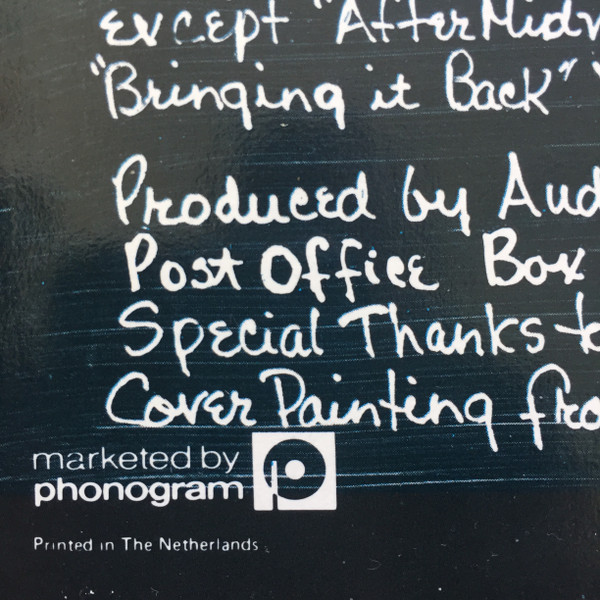 except "After Midn
"Bringing it Back"
Produced by Aud
Post Office Box
Special Thanks to
Cover Painting fro
marketed by
phonogram
Printed in The Netherlands